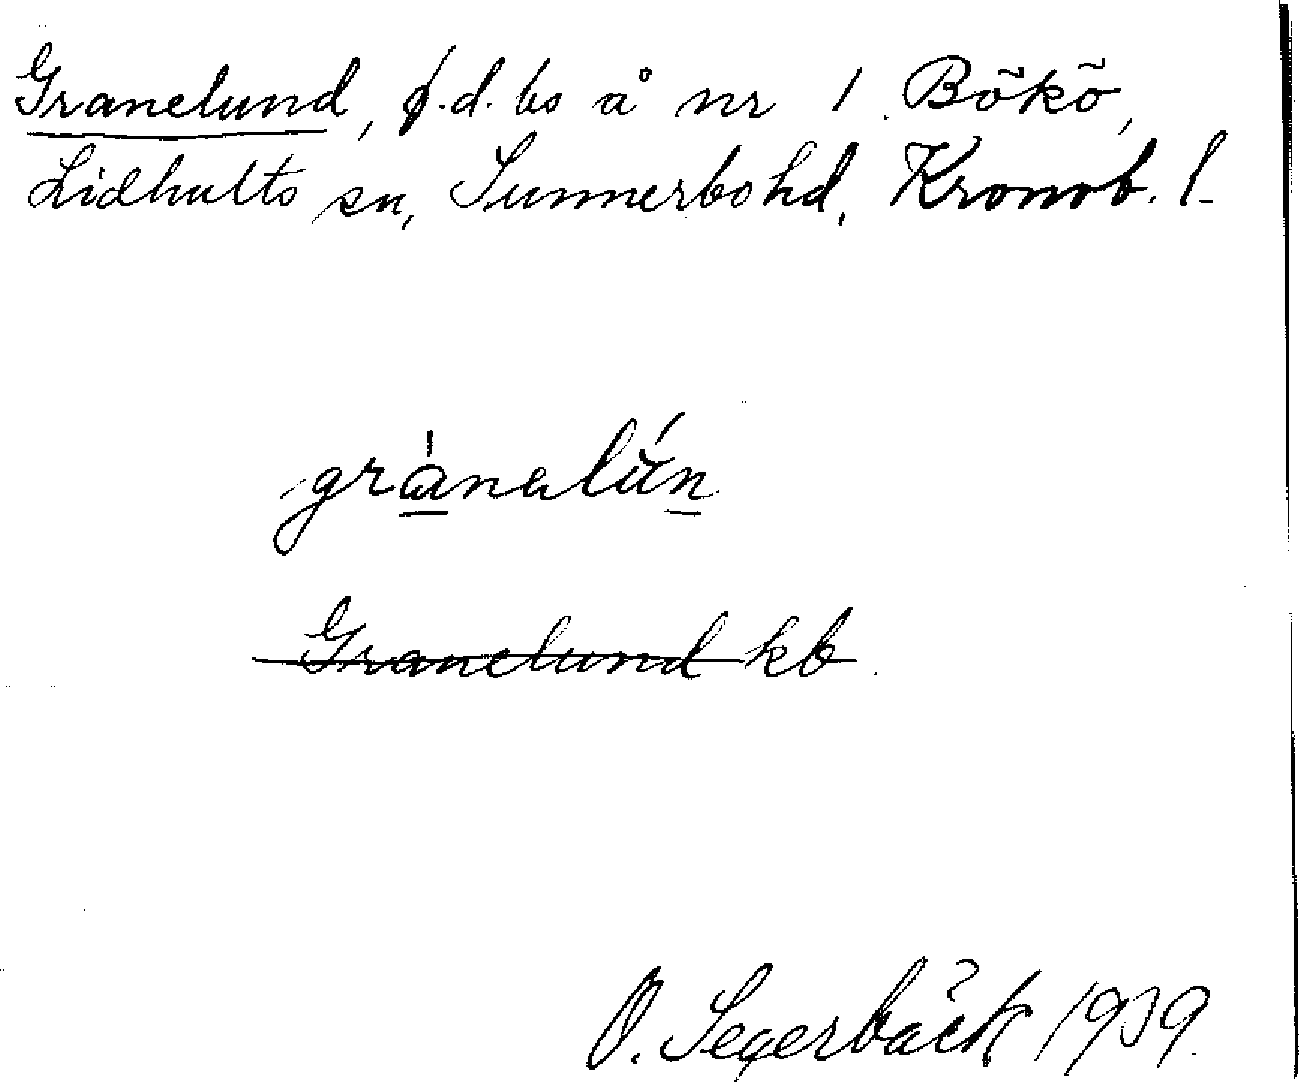 Granelund, f.d. bs å nr 1 Bökö,
Lidhults sn, Sunnerbo hd, Kronob. l.
grànalún
Granelund kb.
O. Segerbäck 1939.